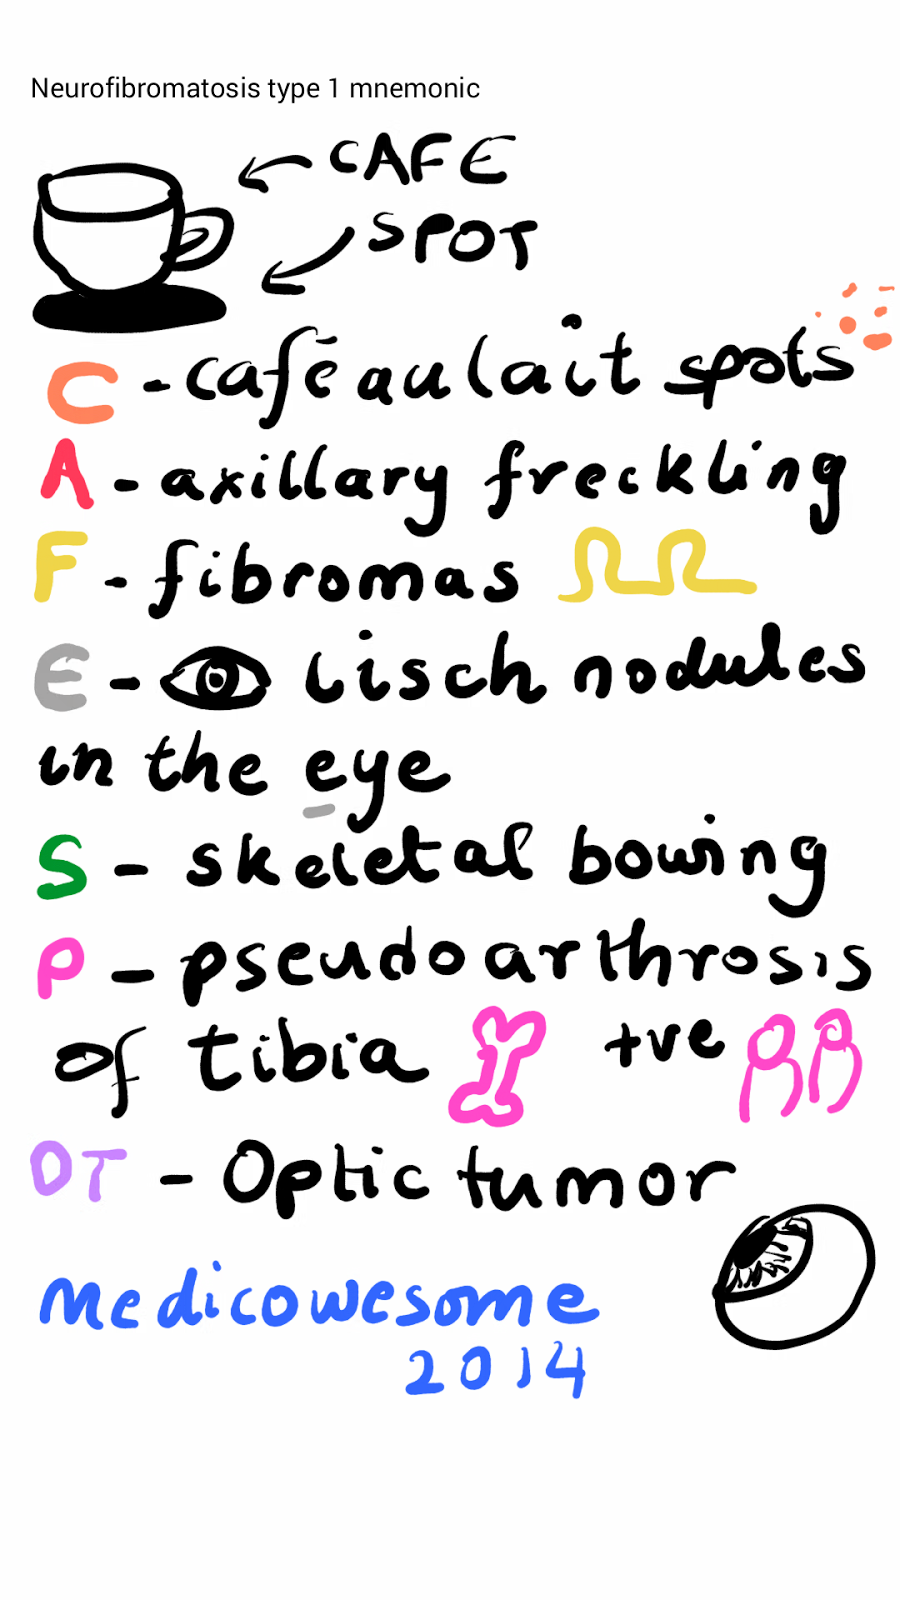 Neurofibromatosis type 1 mnemonic
CAFE
SPOT
C - café au lait spots
A - axillary freckling
F - fibromas
E - lisch nodules
in the eye
S - skeletal bowing
P - pseudoarthrosis
of tibia +ve
OT - Optic tumor
Medicowesome
2014